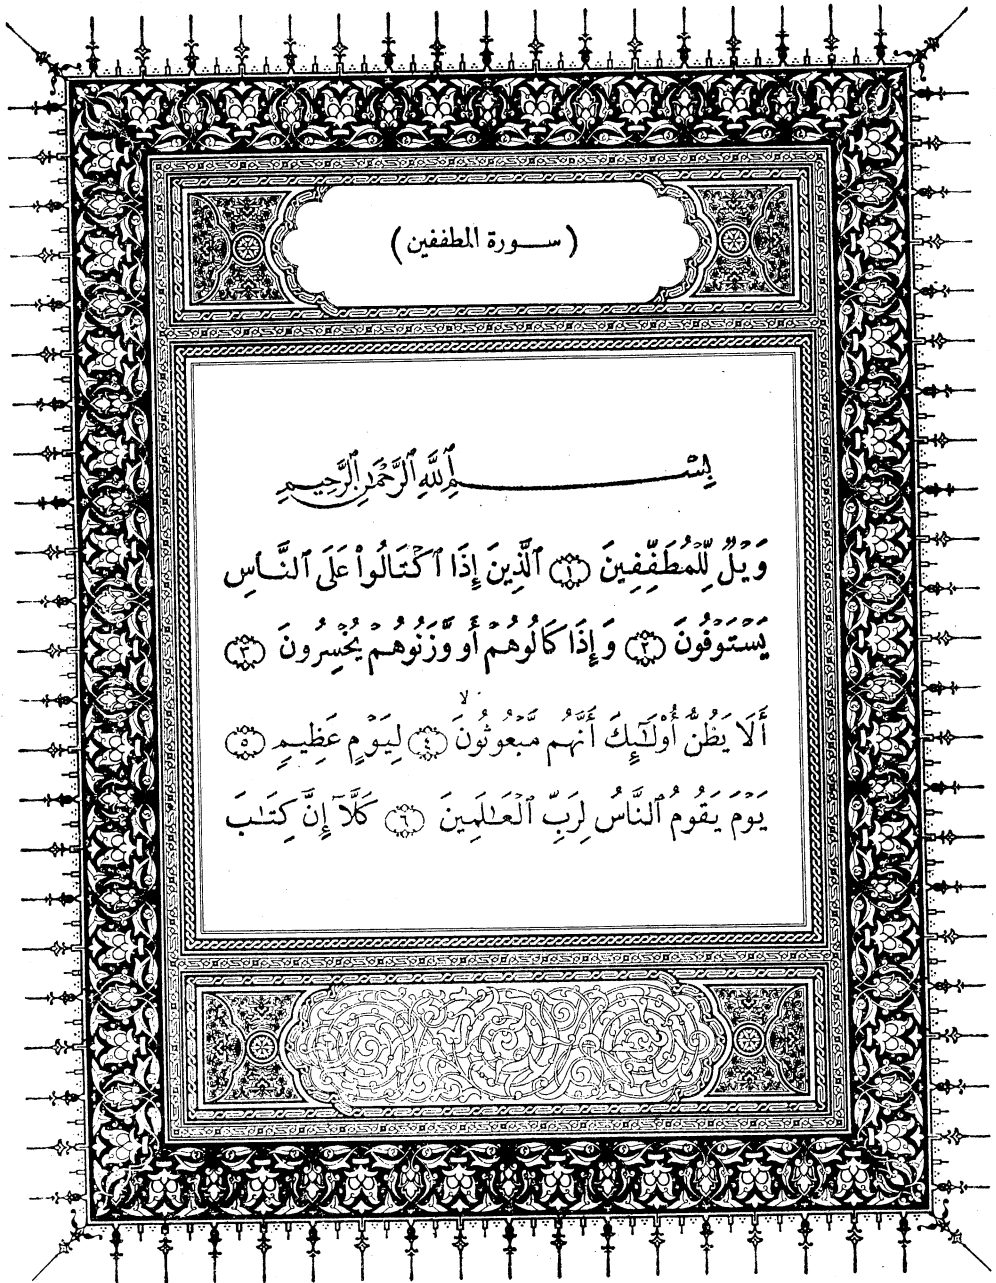 ( ســـورة المطففين )
بِسْـــــــمِ ٱللَّهِ ٱلرَّحْمَٰنِ ٱلرَّحِيمِ
وَيْلٌ لِّلْمُطَفِّفِينَ ۝١ ٱلَّذِينَ إِذَا ٱكْتَالُوا۟ عَلَى ٱلنَّاسِ
يَسْتَوْفُونَ ۝٢ وَإِذَا كَالُوهُمْ أَو وَّزَنُوهُمْ يُخْسِرُونَ ۝٣
أَلَا يَظُنُّ أُو۟لَٰٓئِكَ أَنَّهُم مَّبْعُوثُونَ ۙ۝٤ لِيَوْمٍ عَظِيمٍ ۝٥
يَوْمَ يَقُومُ ٱلنَّاسُ لِرَبِّ ٱلْعَٰلَمِينَ ۝٦ كَلَّآ إِنَّ كِتَٰبَ